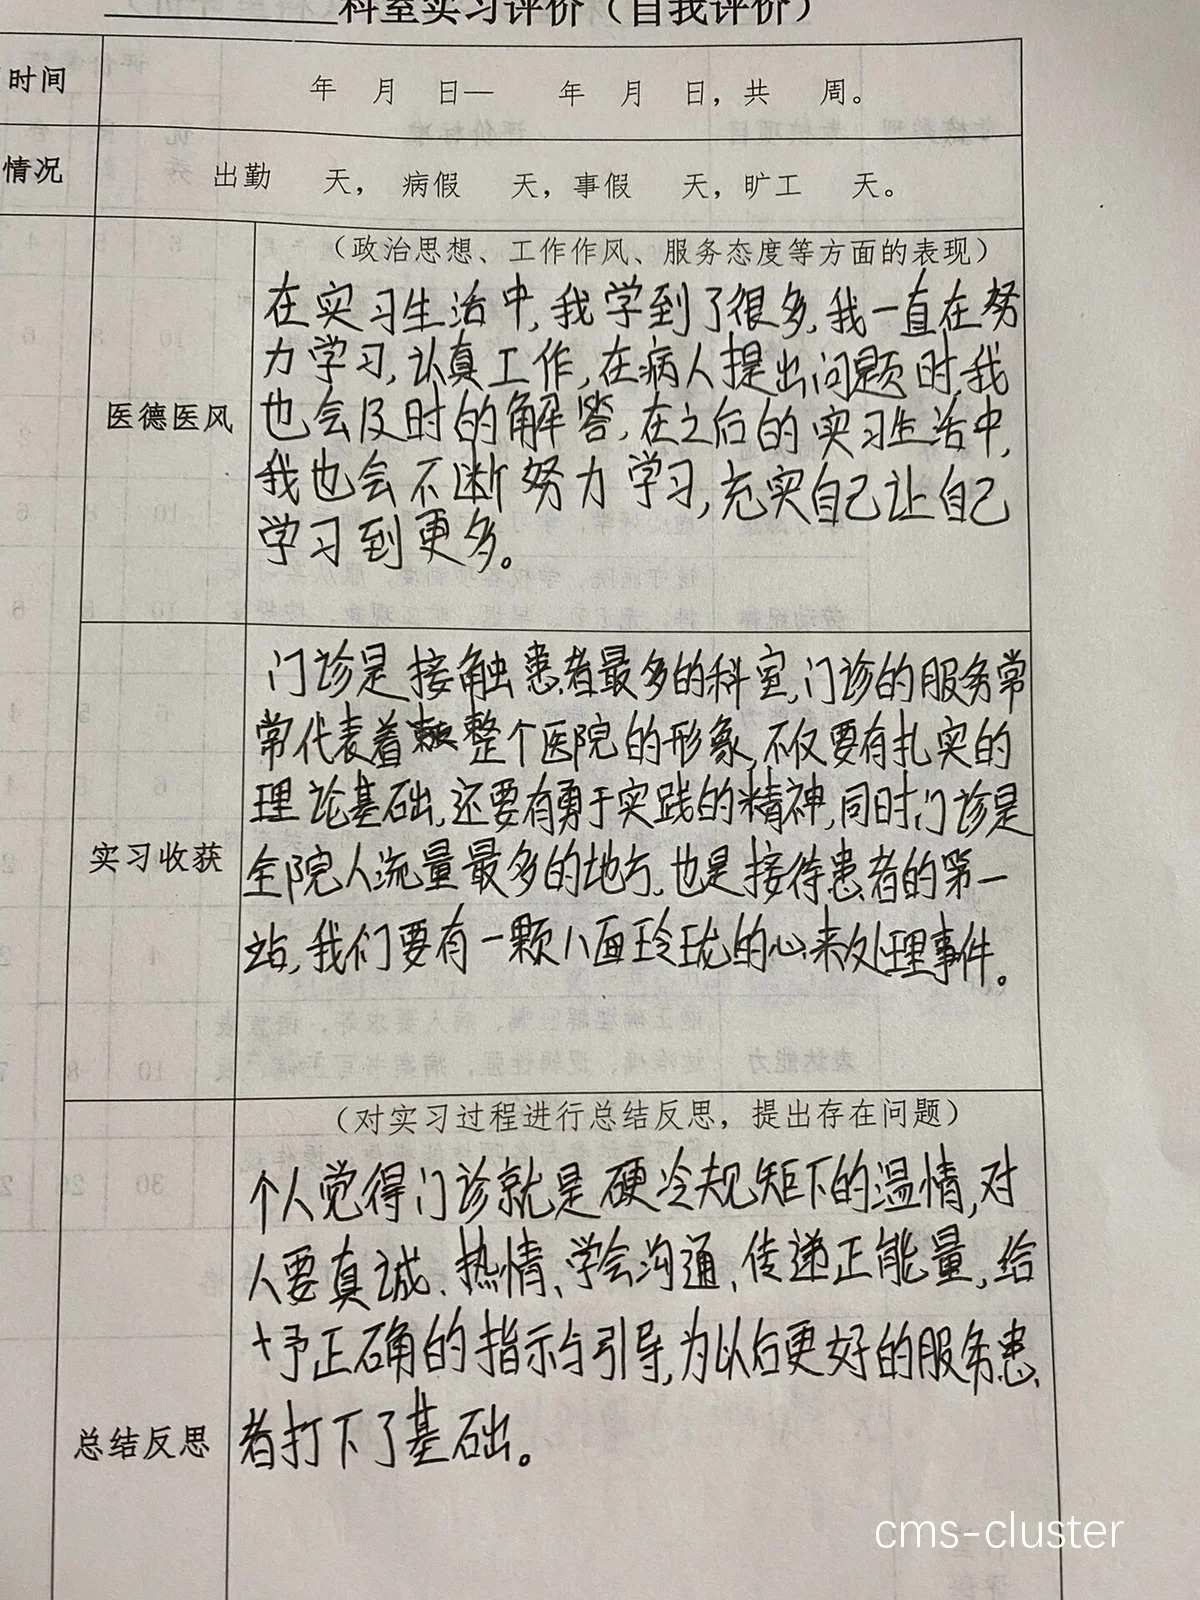 科室实习评价（自我评价）
时间
年 月 日— 年 月 日，共 周。
情况
出勤 天， 病假 天，事假 天，旷工 天。
医德医风
（政治思想、工作作风、服务态度等方面的表现）
在实习生活中,我学到了很多,我一直在努
力学习,认真工作,在病人提出问题时,我
也会及时的解答,在之后的实习生活中,
我也会不断努力学习,充实自己让自己
学习到更多。
实习收获
门诊是接触患者最多的科室,门诊的服务常
常代表着整个医院的形象,不仅要有扎实的
理论基础,还要有勇于实践的精神,同时门诊是
全院人流量最多的地方,也是接待患者的第一
站,我们要有一颗八面玲珑的心来处理事件。
总结反思
（对实习过程进行总结反思，提出存在问题）
个人觉得门诊就是硬冷规矩下的温情,对
人要真诚、热情、学会沟通,传递正能量,给
予正确的指示与引导,为以后更好的服务患
者打下了基础。
cms-cluster